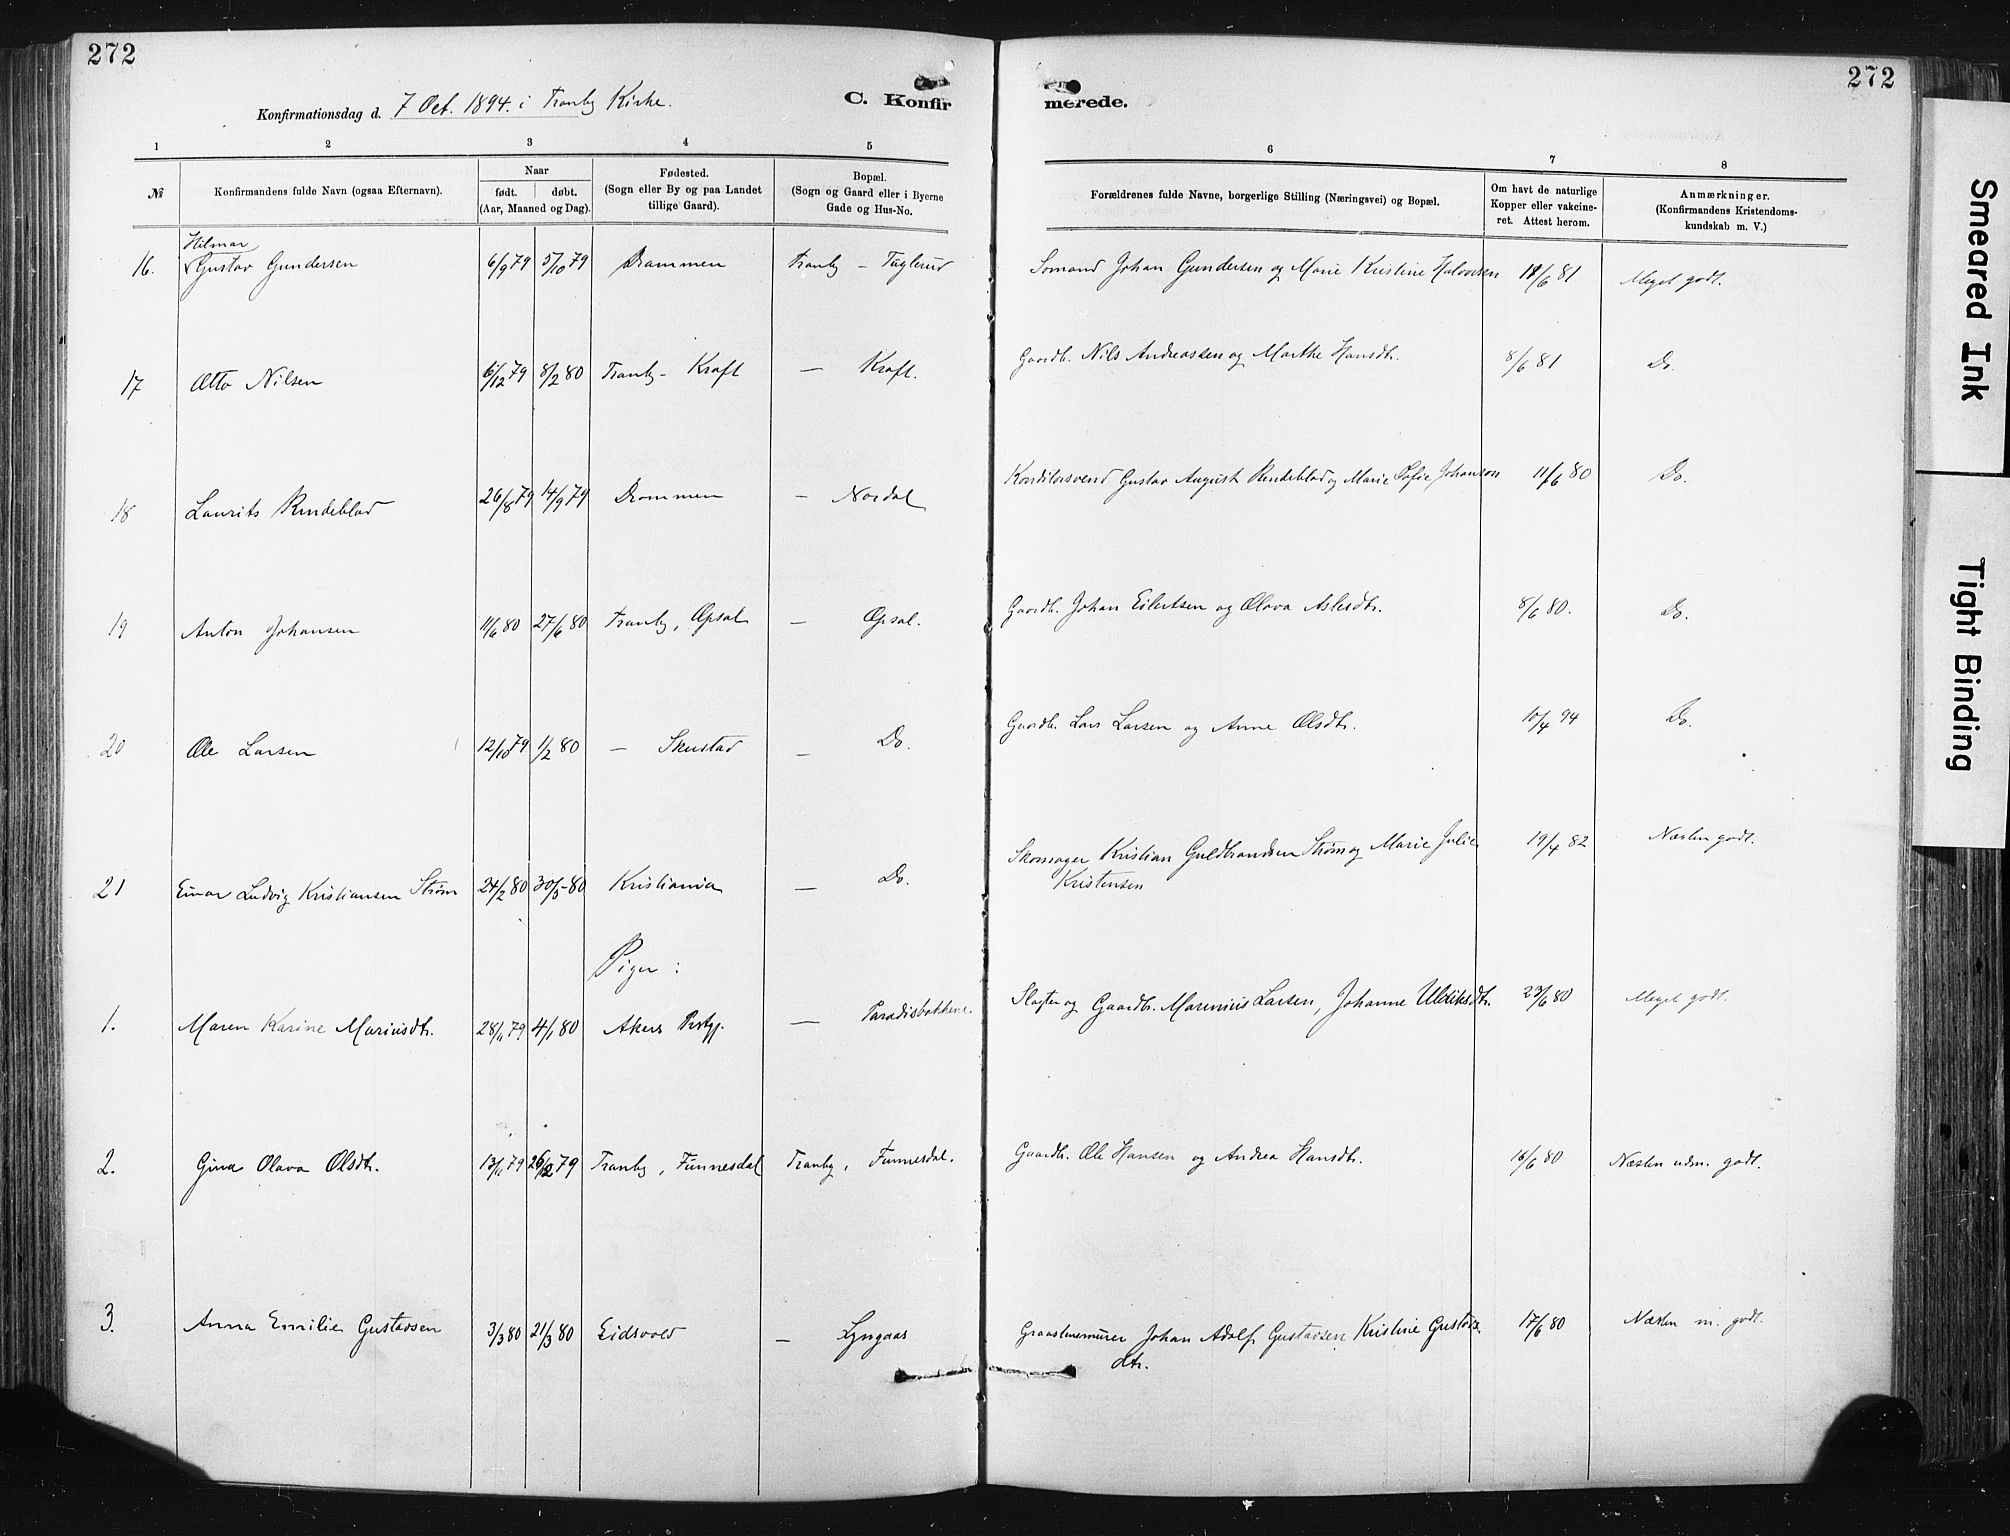 272
272
Konfirmationsdag d. 7 Oct. 1894. i Tranby Kirke.
C. Konfir
merede.
1 2 3 4 5 6 7 8
№ Konfirmandens fulde Navn (ogsaa Efternavn).
Naar
født. døbt.
(Aar, Maaned og Dag).
Fødested.
(Sogn eller By og paa Landet
tillige Gaard).
Bopæl.
(Sogn og Gaard eller i Byerne
Gade og Hus-No.
Forældrenes fulde Navne, borgerlige Stilling (Næringsvei) og Bopæl.
Om havt de naturlige
Kopper eller vakcine-
ret. Attest herom.
Anmærkninger.
(Konfirmandens Kristendoms-
kundskab m. V.)
Hilmar
16. Gustav Gundersen 6/9 79 5/10 79 Drammen Tranby – Tuglerud Sømand Johan Gundersen og Marie Kristine Halvorsen 11/6 81 Meget godt.
17 Otto Nilsen 6/12 79 8/2 80 Tranby – Kraft — Kraft. Gaardb. Nils Andreassen og Marthe Hansdtr. 8/6 81 Do.
18 Laurits Rundeblad 26/8 79 14/9 79 Drammen – Nordal Konditorsvend Gustav August Rundeblad og Marie Sofie Johanson 11/6 80 Do.
19 Anton Johansen 11/6 80 27/6 80 Tranby, Opsal — Opsal. Gaardb. Johan Eilertsen og Olava Aslesdtr. 8/6 80. Do.
20 Ole Larsen 12/10 79 1/2 80 — Skustad — Do. Gaardb. Lars Larsen og Anne Olsdtr. 10/4 94 Do.
21 Einar Ludvig Kristiansen Strøm 24/2 80 30/5 80 Kristiania — Do. Skomager Kristian Guldbrandsen Strøm og Marie Julie 19/4 82 Næsten godt.
Kristensen
Piger:
1. Maren Karine Mariusdtr. 28/11 79 4/1 80 Akers Prstgj. — Paradisbakkene Slagter og Gaardb. Marenius Larsen, Johanne Ulriksdtr. 23/6 80 Meget godt.
2. Gina Olava Olsdtr. 13/11 79 26/12 79 Tranby, Funnesdal Tranby, Funnesdal. Gaardb. Ole Hansen og Andrea Hansdtr. 16/6 80 Næsten udm. godt.
3. Anna Emilie Gustavsen 3/3 80 21/3 80 Eidsvold — Lyngaas Graastensmurer Johan Adolf Gustavsen Kristine Gustavs 17/6 80 Næsten m. godt.
dtr.
Smeared Ink
Tight Binding